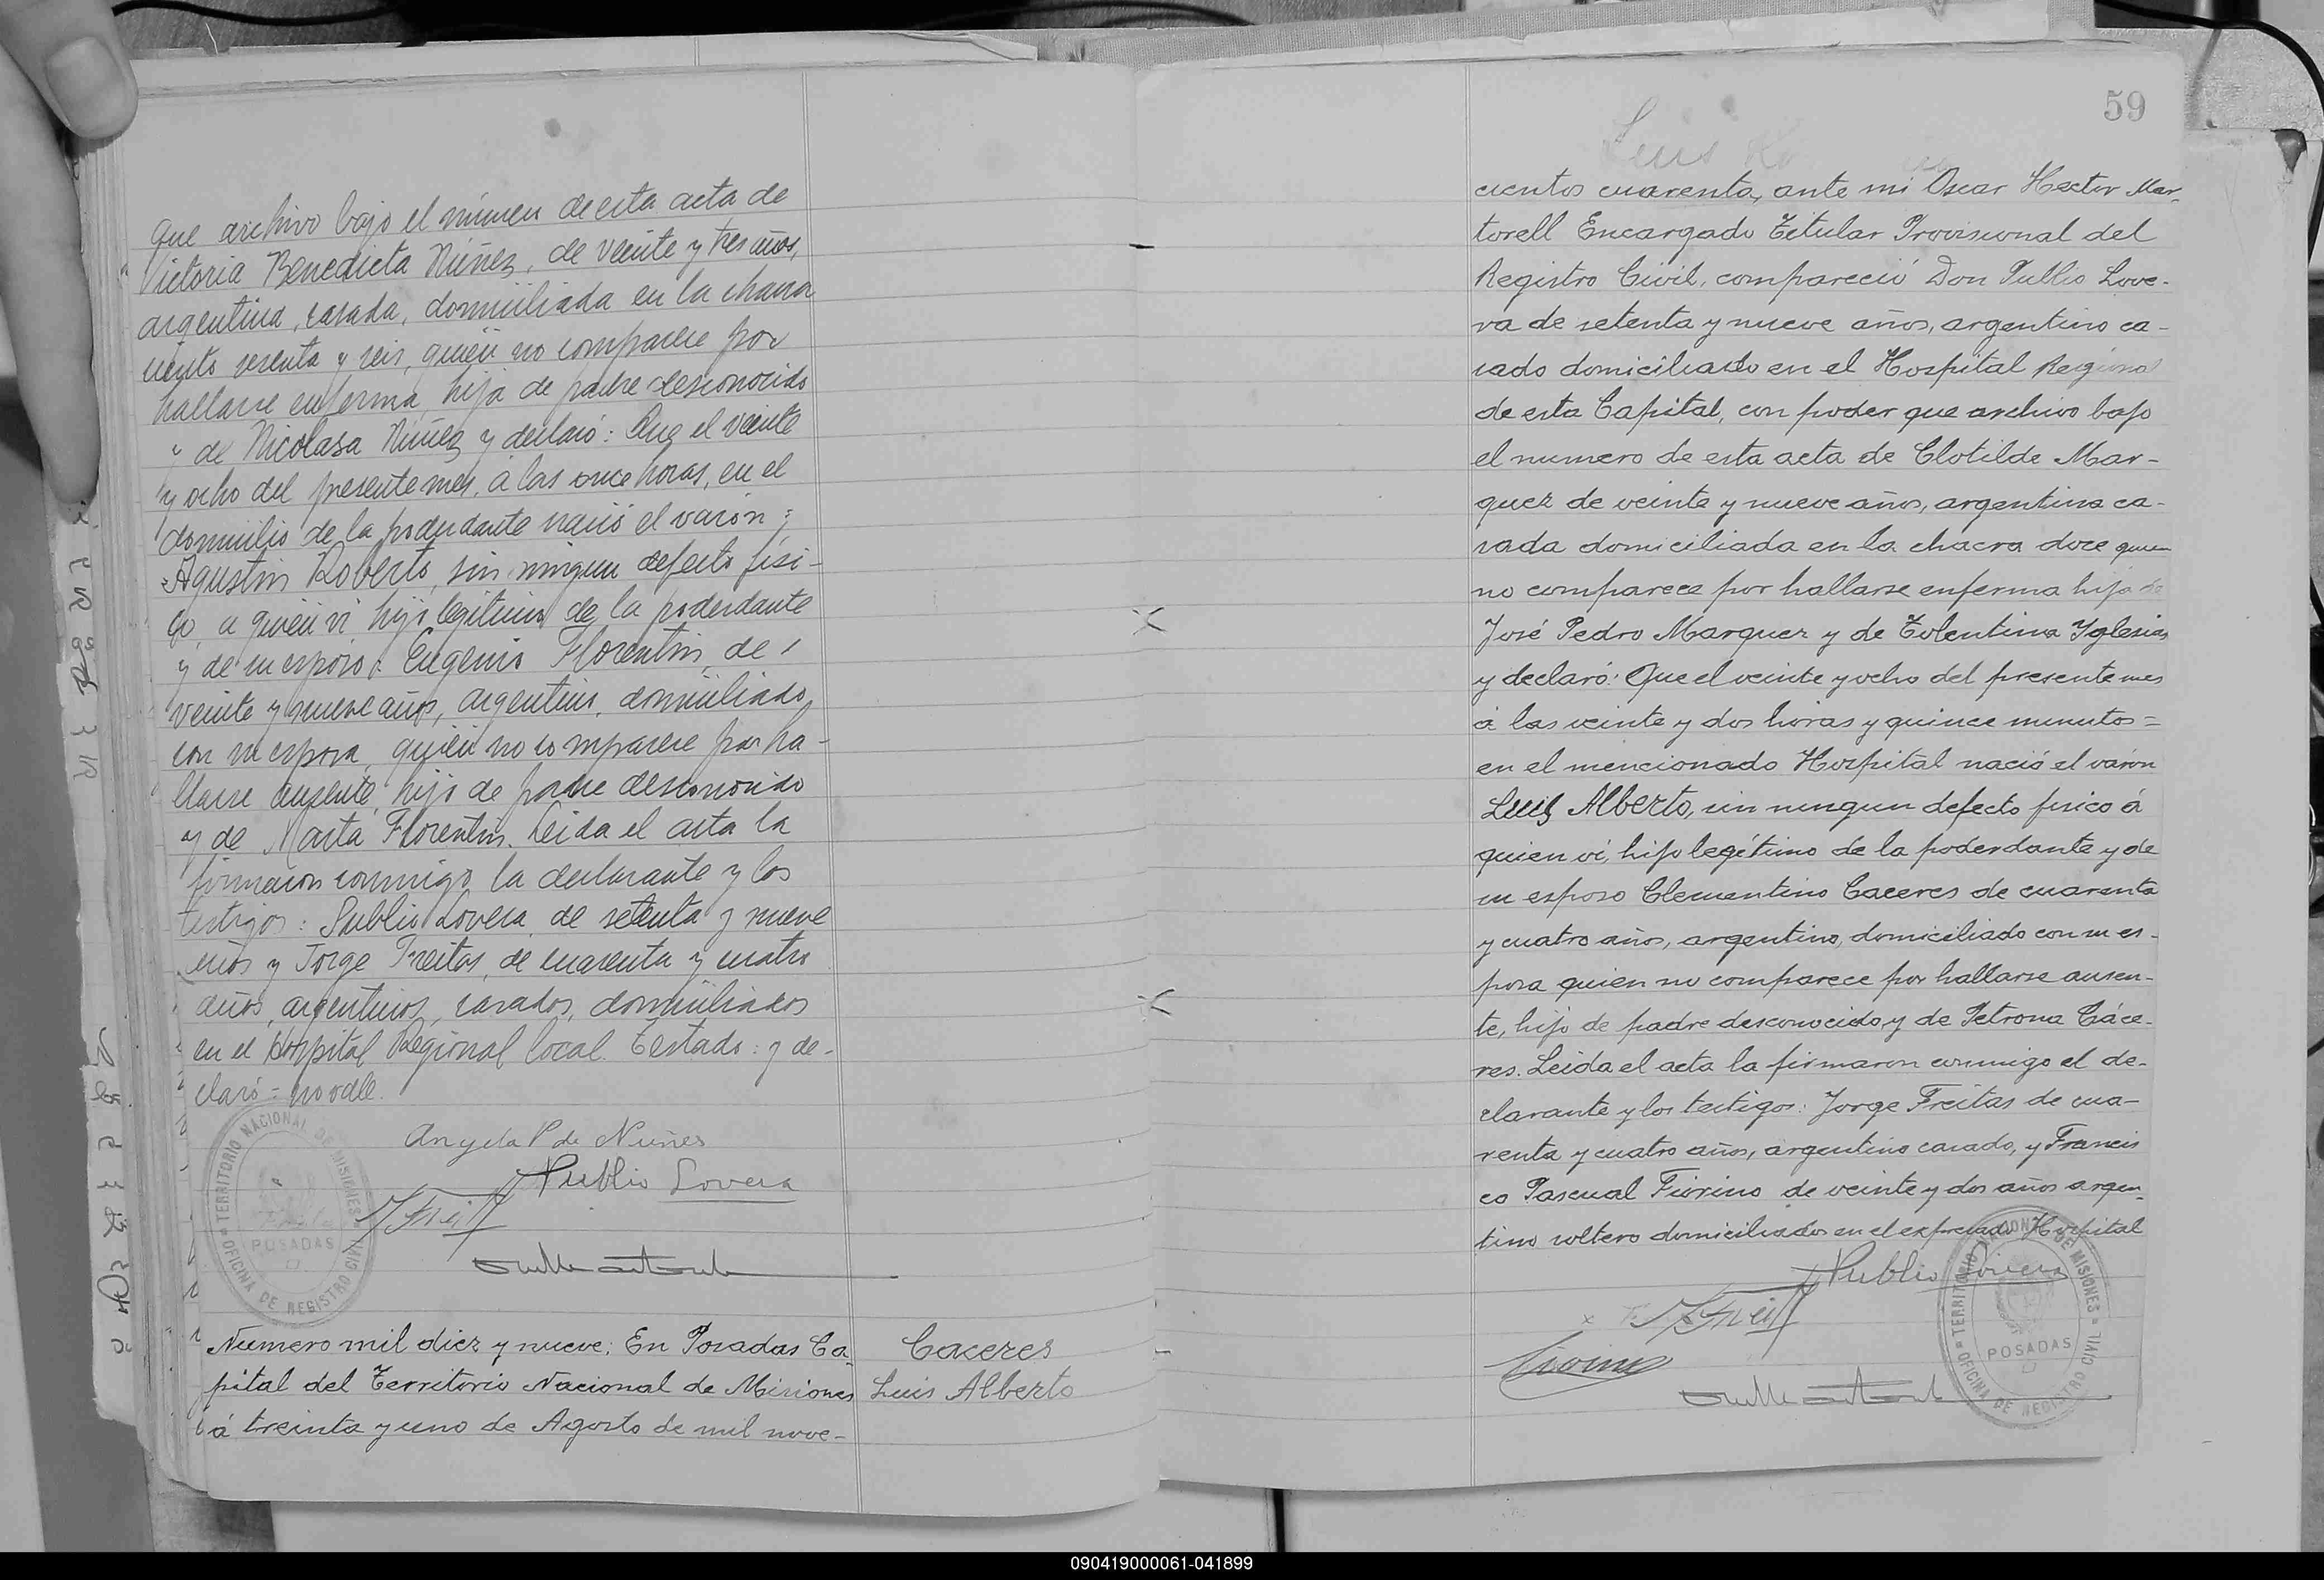 que archivo bajo el número de esta acta de
Victoria Benedicta Núñez, de veinte y tres años,
argentina, casada, domiciliada en la chacra
ciento sesenta y seis, quién no comparece por
hallarse enferma, hija de padre desconocido
y de Nicolasa Núñez y declaró: Que el veinte
y ocho del presente mes, a las once horas, en el
domicilio de la poderdante nació el varón:
Agustin Roberto, sin ningun defecto fisi-
co, a quién vi, hijo legítimo de la poderdante
y de su esposo: Eugenio Florentin, de
veinte y nueve años, argentino, domiciliado
con su esposa, quién no comparece por ha-
llarse ausente, hijo de padre desconocido
y de Marta Florentin. Leida el acta la
firmaron conmigo la declarante y los
testigos: Publio Lovera, de setenta y nueve
años y Jorge Freitas, de cuarenta y cuatro
años, argentinos, casados, domiciliados
en el Hospital Regional local. Testado: y de-
claró = no vale.
Angela P de Nuñes
Publio Lovera
JFreitas
TERRITORIO NACIONAL DE MISIONES
POSADAS
OFICINA DE REGISTRO CIVIL
Numero mil diez y nueve: En Posadas Ca-
pital del Territorio Nacional de Misiones
á treinta y uno de Agosto de mil nove-
Caceres
Luis Alberto
59
Luis
cientos cuarenta, ante mi Oscar Hector Mar-
torell Encargado Titular Provisional del
Registro Civil, compareció Don Publio Love-
ra de setenta y nueve años, argentino ca-
sado domiciliado en el Hospital Regional
de esta Capital, con poder que archivo bajo
el numero de esta acta de Clotilde Mar-
quez de veinte y nueve años, argentina ca-
sada domiciliada en la chacra doce quien
no comparece por hallarse enferma hija de
José Pedro Marquez y de Tolentina Yglesias
y declaró: Que el veinte y ocho del presente mes
á las veinte y dos horas y quince minutos =
en el mencionado Hospital nació el varón
Luis Alberto, sin ningun defecto fisico á
quien ví, hijo legítimo de la poderdante y de
su esposo Clementino Caceres de cuarenta
y cuatro años, argentino, domiciliado con su es-
posa quien no comparece por hallarse ausen-
te, hijo de padre desconocido y de Petrona Cáce-
res. Leida el acta la firmaron conmigo el de-
clarante y los testigos: Jorge Freitas de cua-
renta y cuatro años, argentino casado, y Francis
co Pascual Fiorino de veinte y dos años argen-
tino soltero domiciliados en el expresado Hospital
Publio Lovera
JFreitas
Fiorino
TERRITORIO NACIONAL DE MISIONES
POSADAS
OFICINA DE REGISTRO CIVIL
090419000061-041899